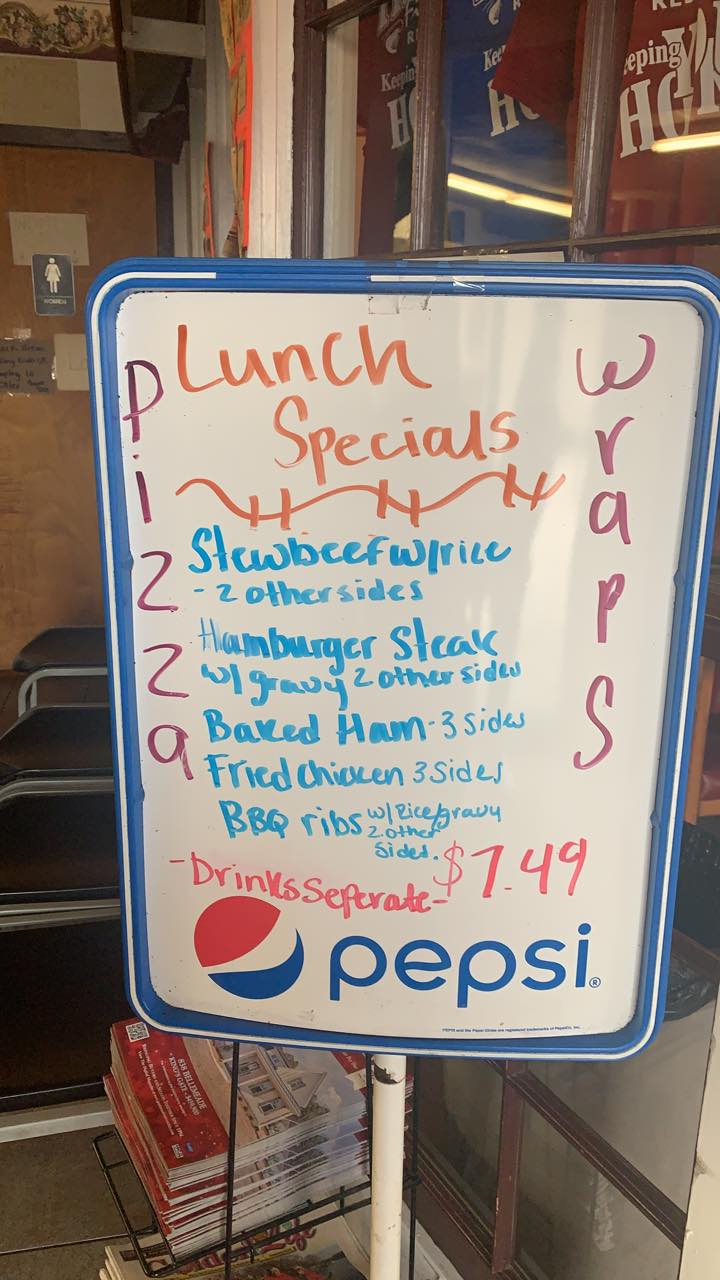 Lunch
Specials
Pizza
wraps
Stewbeef w/rice
- 2 other sides
Hamburger Steak
w/ gravy 2 other sides
Baked Ham - 3 sides
Fried chicken 3 sides
BBQ ribs w/ Rice/gravy
2 other
sides.
-Drinks Seperate- $7.49
pepsi®
PEPSI and the Pepsi Globe are registered trademarks of PepsiCo, Inc.
WOMEN
Keeping
HO
Kee
HO
eeping
HO
838 BELLEMEADE